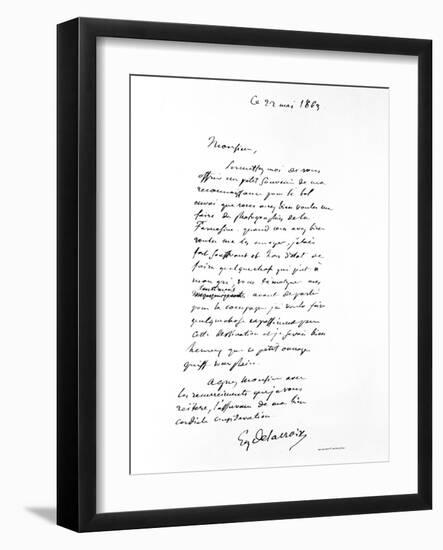 Ce 22 mai 1863
Monsieur,
Permettez moi de vous
offrir un petit souvenir de ma
reconnaissance pour le bel
envoi que vous avez bien voulu me
faire de photographies de la
Farnesine. quand vous avez bien
voulu me les envoyer, j'étais
fort souffrant et hors d'état de
faire quelque chose qui pût à
mon gré, vous témoigner mes
sentiments
avant de partir
pour la campagne j'ai voulu faire
quelque chose expressément pour
cette destination et je serais bien
heureux que ce petit ouvrage
pût vous plaire.
Agréez Monsieur avec
les remerciements que je vous
réitère, l'assurance de ma bien
cordiale considération
Eug Delacroix